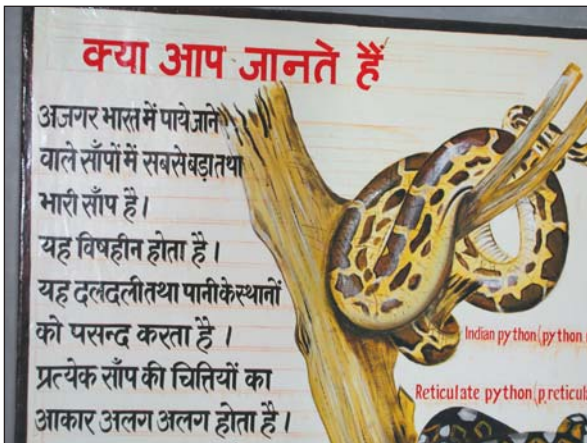 क्या आप जानते हैं
अजगर भारत में पाये जाने
वाले साँपों में सबसे बड़ा तथा
भारी साँप है।
यह विषहीन होता है।
यह दलदली तथा पानी के स्थानों
को पसन्द करता है।
प्रत्येक साँप की चित्तियों का
आकार अलग अलग होता है।
Indian python (python
Reticulate python (p.reticul